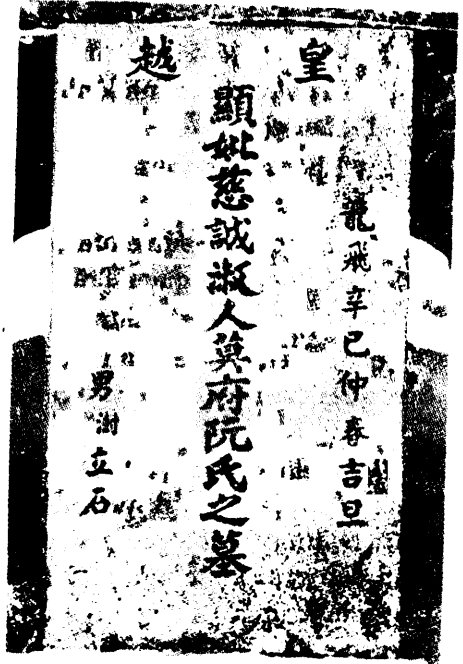 皇越
龍飛辛巳仲春吉旦
顯妣慈誠淑人莫府阮氏之墓
男澍立石